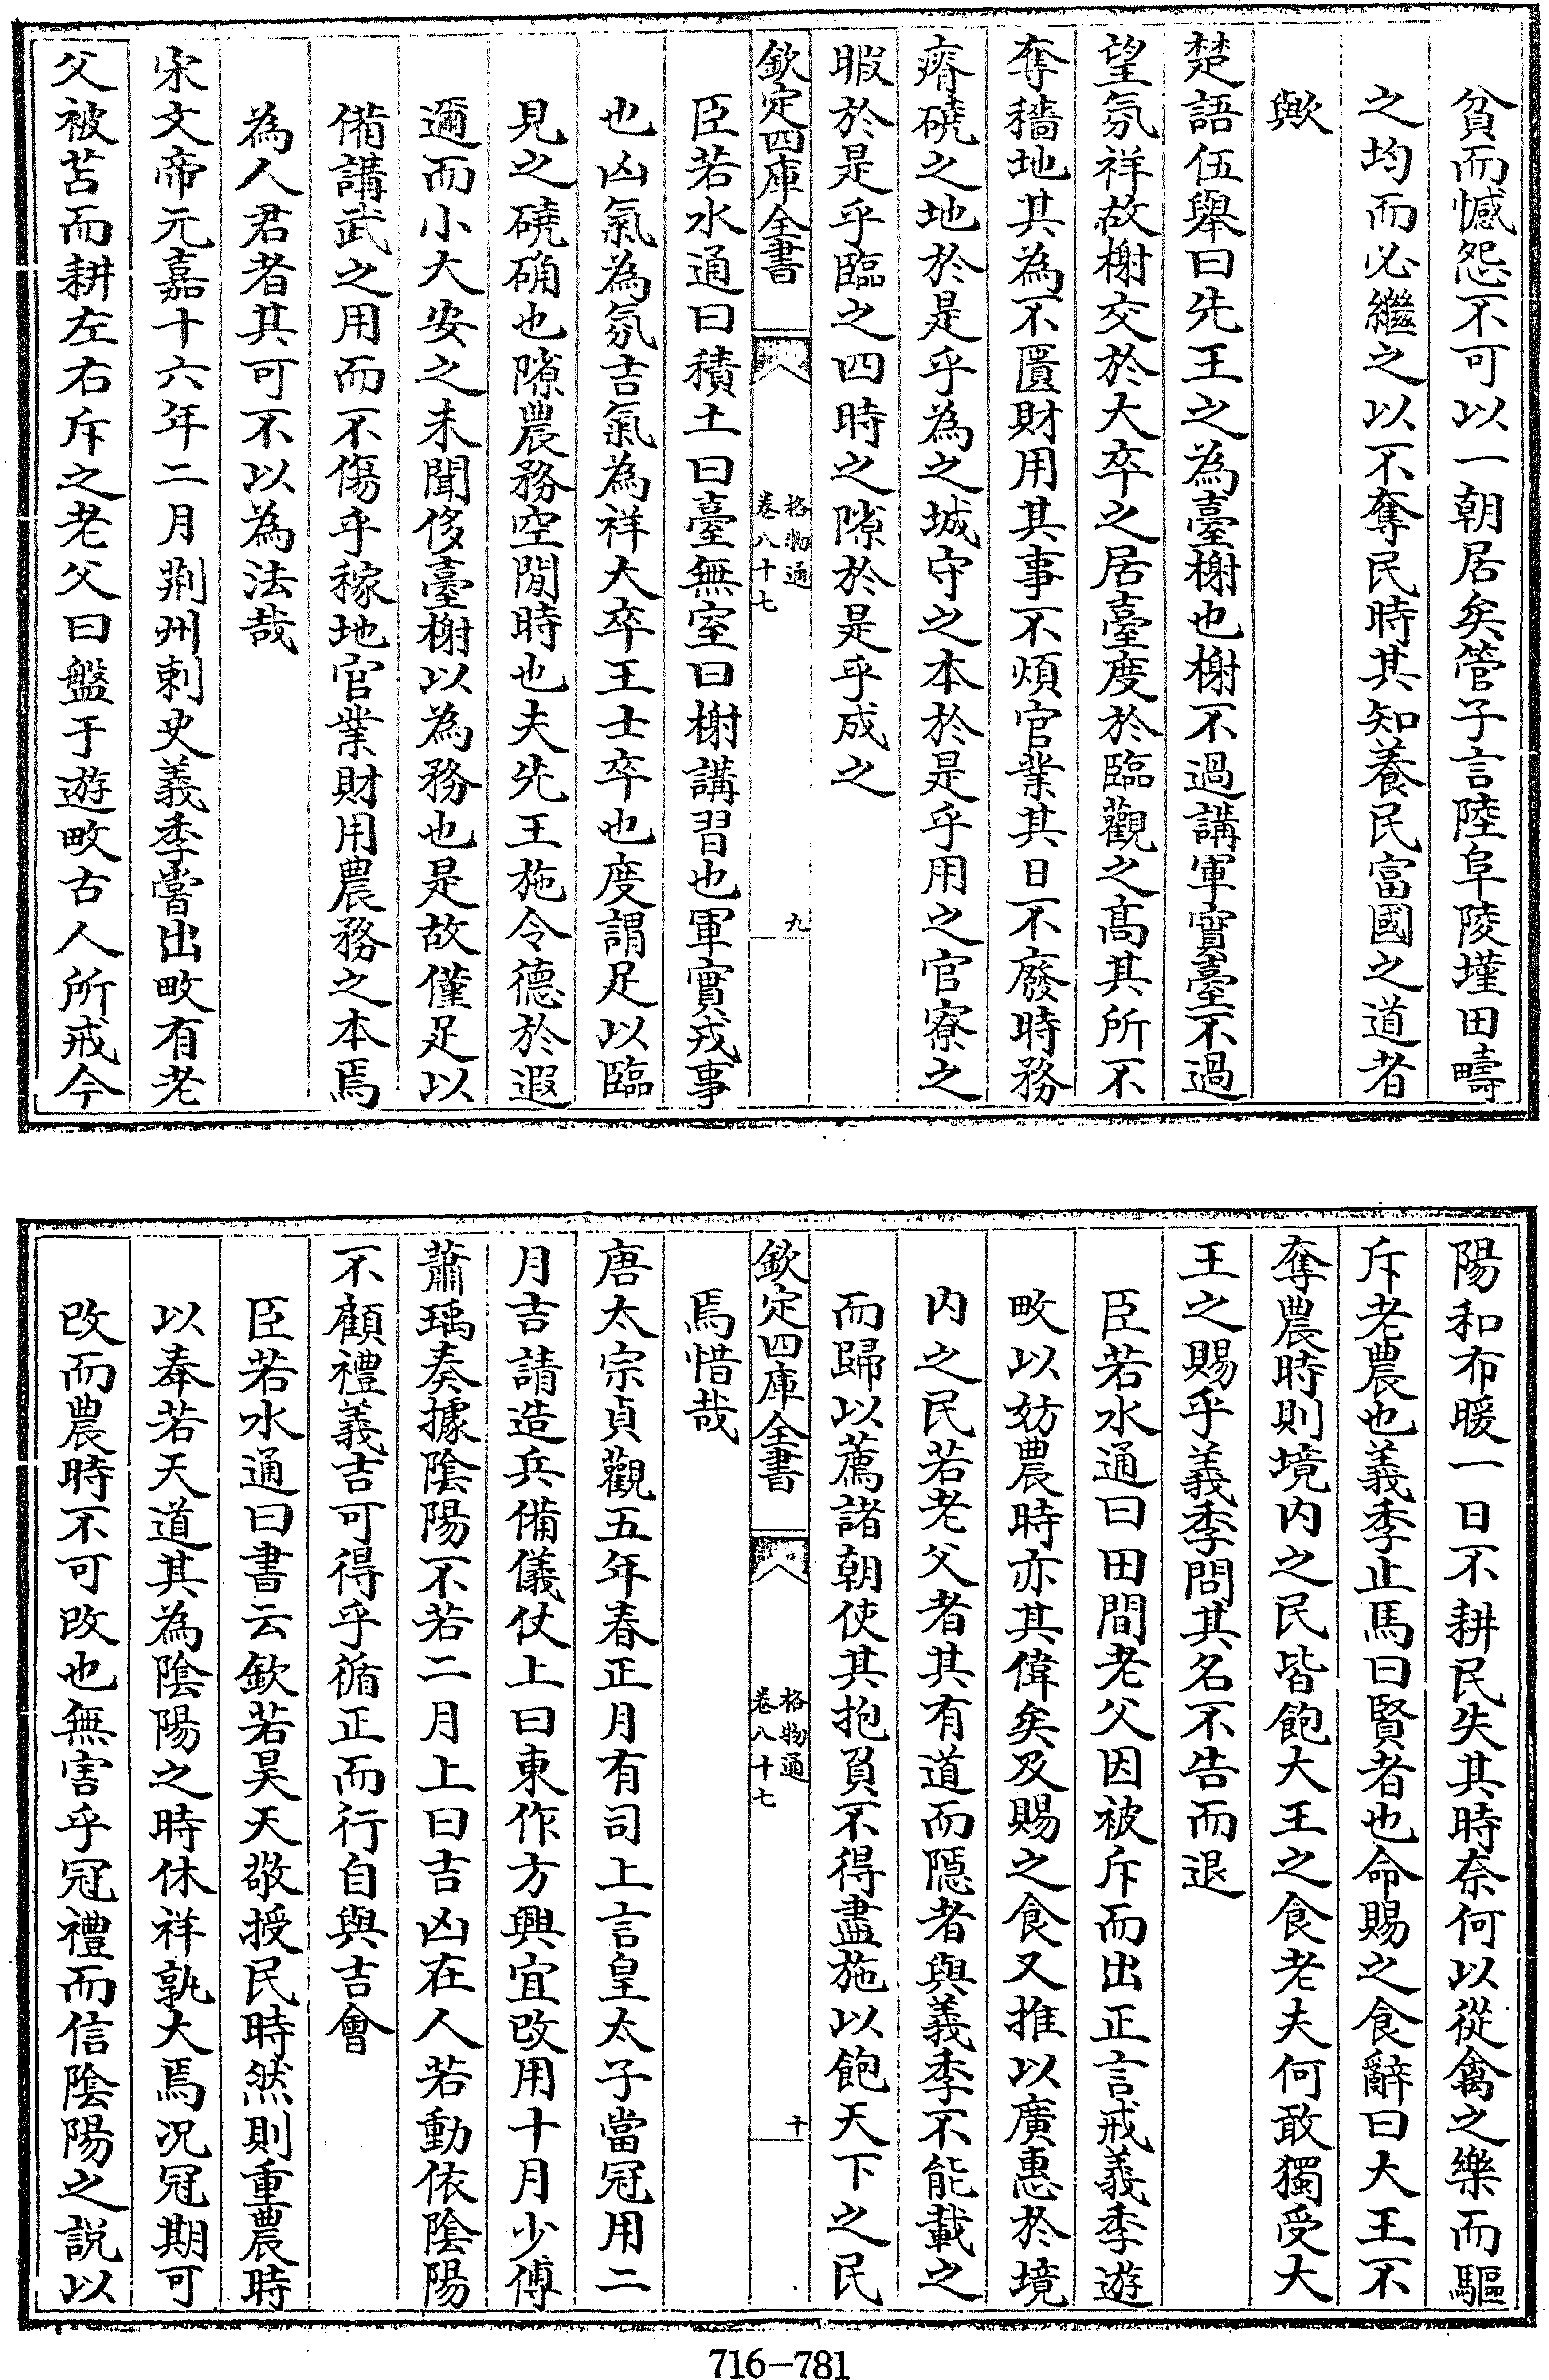 貧而憾怨不可以一朝居矣管子言陸阜陵墐田疇
之均而必繼之以不奪民時其知養民富國之道者
歟
楚語伍舉曰先王之為臺榭也榭不過講軍實臺不過
望氛祥故榭交於大卒之居臺度於臨觀之髙其所不
奪穡地其為不匱財用其事不煩官業其日不廢時務
瘠磽之地於是乎為之城守之本於是乎用之官寮之
暇於是乎臨之四時之隙於是乎成之
欽定四庫全書
格物通
卷八十七
九
臣若水通曰積土曰臺無室曰榭講習也軍實戎事
也凶氣為氛吉氣為祥大卒王士卒也度謂足以臨
見之磽确也隙農務空閒時也夫先王施令德於遐
邇而小大安之未聞侈臺榭以為務也是故僅足以
備講武之用而不傷乎稼地官業財用農務之本焉
為人君者其可不以為法哉
宋文帝元嘉十六年二月荆州刺史義季嘗出畋有老
父被苫而耕左右斥之老父曰盤于遊畋古人所戒今
陽和布暖一日不耕民失其時奈何以從禽之樂而驅
斥老農也義季止馬曰賢者也命賜之食辭曰大王不
奪農時則境内之民皆飽大王之食老夫何敢獨受大
王之賜乎義季問其名不告而退
臣若水通曰田間老父因被斥而出正言戒義季遊
畋以妨農時亦其偉矣及賜之食又推以廣惠於境
内之民若老父者其有道而隱者與義季不能載之
而歸以薦諸朝使其抱負不得盡施以飽天下之民
欽定四庫全書
格物通
卷八十七
十
焉惜哉
唐太宗貞觀五年春正月有司上言皇太子當冠用二
月吉請造兵備儀仗上曰東作方興宜改用十月少傅
蕭瑀奏據陰陽不若二月上曰吉凶在人若動依陰陽
不顧禮義吉可得乎循正而行自與吉會
臣若水通曰書云欽若昊天敬授民時然則重農時
以奉若天道其為陰陽之時休祥孰大焉况冠期可
改而農時不可改也無害乎冠禮而信陰陽之説以
716-781